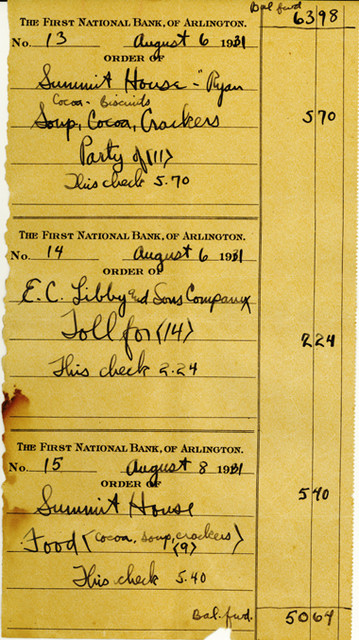 Bal. fwd 63 98
THE FIRST NATIONAL BANK, OF ARLINGTON.
No. 13 August 6 1931
ORDER OF
Summit House - "Ryan
Cocoa - Biscuits
Soup, Cocoa, Crackers 5 70
Party of (11)
This check 5.70
THE FIRST NATIONAL BANK, OF ARLINGTON.
No. 14 August 6 1931
ORDER OF
E. C. Libby and Sons Company
Toll for (14) 2 24
This check 2.24
THE FIRST NATIONAL BANK, OF ARLINGTON.
No. 15 August 8 1931
ORDER OF
Summit House 5 40
Food (Cocoa, Soup, crackers)
(9)
This check 5.40
Bal. fwd. 50 64